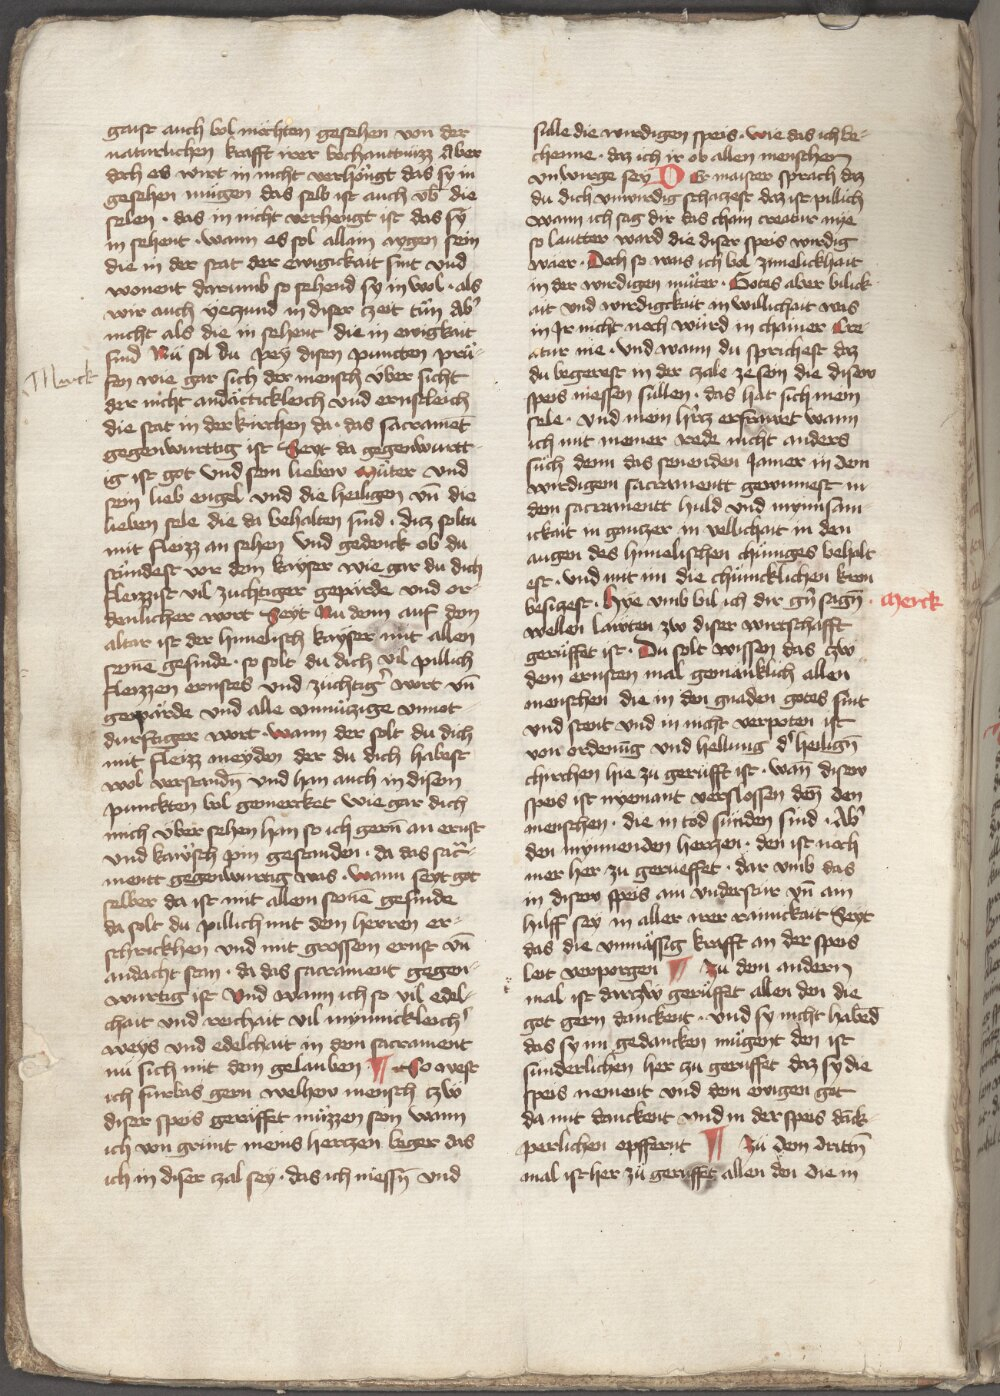 gaist auch bol möchten gesehen von der
naturlichen krafft irer bechanttnüzz Aber
doch es wirt in nicht verhöngt das sy in
gesehen mügen das selb ist auch vb' die
selen · das in nicht verhengt ist das sy
in sehent · wann es sol allain aygen sein
die in der stat der ewigickait sint vnd
wonent darumb so sehend sy in wol · als
wir auch yeczund in diser czeit tün Ab'
nicht als die in sehent die in ewigkait
sind Nü sol du pey disen puncten prü-
Merck
fen wie gar sich der mensch vber sicht
der nicht andächtickleich vnd ernstleich
die stat in der kirchen da · das sacramēt
gegenwurttig ist Seyt da gegenwurtt-
ig ist got vnd sein liebew müter vnd
sein lieb engel vnd die heiligen vn̄ die
lieben sele die da behalten sind · dicz soltu
mit fleizz an sehen vnd gedenck ob du
stündest vor dem kayser wie gar du dich
fleizzist vil zuchtiger gepärde vnd or-
denlicher wort Seyt Nu denn auf dem
altar ist der himelisch kayser mit allen
seine gesinde · so solt du dich vil pillich
fleizzen ernstes vnd züchtig' wort vn̄
gepärde vnd alle vnnüczige vnnot-
durftiger wort · wann der solt du dich
mit fleizz meyden der du dich habest
wol verstandn̄ vnd han auch in disem
punckten bol gemercket wie gar dich
mich vber sehen han so ich gern̄ an ernst
vnd kawsch pin gestanden · da das sac̄-
mentt gegenwurtig was · wann seyt got
selber da ist mit allem seinē gesinde
da solt du pillich mit dem herren er-
schrickhen vnd mit grossem ernst vn̄
andacht stan · da das sacrament gegen-
wurtig ist Vnd wann ich so vil edel-
chait vnd reichait vil mynnickleich'
weys vnd edelchait in dem sacrament
nü sich mit dem gelauben ¶ So west
ich fürbas gern welhew mensch czw
diser speis gerüffet müzzen sein wann
ich von grünt meins herczen beger das
ich in diser czal sey · das ich niessn̄ vnd
sülle die wirdigen speis · wie das ich be-
chenne · daz ich ir ob allen menschen
vnwirge sey Der maister sprach daz
du dich vnwirdig schaczest daz ist pillich
wann ich sag dir das chain creatur nye
so lautter ward die diser speis wirdig
wäer · Doch so was ich bol zimelickhait
in der wirdigen müter · Gotes aber bilick
ait vnd wirdigckait in willichait was
in Jr nicht noch würd in chainer Cre-
atur nie · vnd wann du sprichest daz
du begerest in der czale ze sein die disew
speis niessen süllen · das hat sich mein
sele · vnd mein hercz erfrawet wann
ich mit meiner rede nicht anders
süch denn das senenden Jamer in dem
wirdigem sacramentt gewinnest in
dem sacramentt huld vnd mynnsam-
ickait in ganczer in vellichait in den
augen des himelischen chüniges behalt
est · vnd mit im die chünicklichen kron
besiczest · Hye vmb bil ich dir gn̄ sagn̄ · Merck
wellen lawten zw diser wirtschafft
gerüffet ist · Du solt wissen das czw
dem ersten mal gemainklich allen
menschen die in den gnaden gotes sint
vnd stent vnd in nicht verpoten ist
von ordenūg vnd hellung d' heilign̄
chirchen hie zu gerüfft ist · wan̄ disew
speis ist nyemant verslossen den̄ den
menschen · die in tod sünden sind · Ab'
den mynnenden herczen · den ist noch
mer her zu gerueffet · dar vmb das
in disew speis ain vnderstür vn̄ ain
hilff sey in aller irer rainickait Seyt
das die vnmässig krafft an der speis
leit verporgen ¶ Zu dem andern
mal ist darczw gerüffet allen den die
got gern danckent · vnd sy nicht habēd
das sy im gedancken mügent den ist
sünderlichen her zu gerüffet daz sy die
speis nement vnd dem ewigen got
da mit danckent vnd in der speis dāck-
perlichen epffernt ¶ Zü dem drittn̄
mal ist her zü gerüfft allen den die in